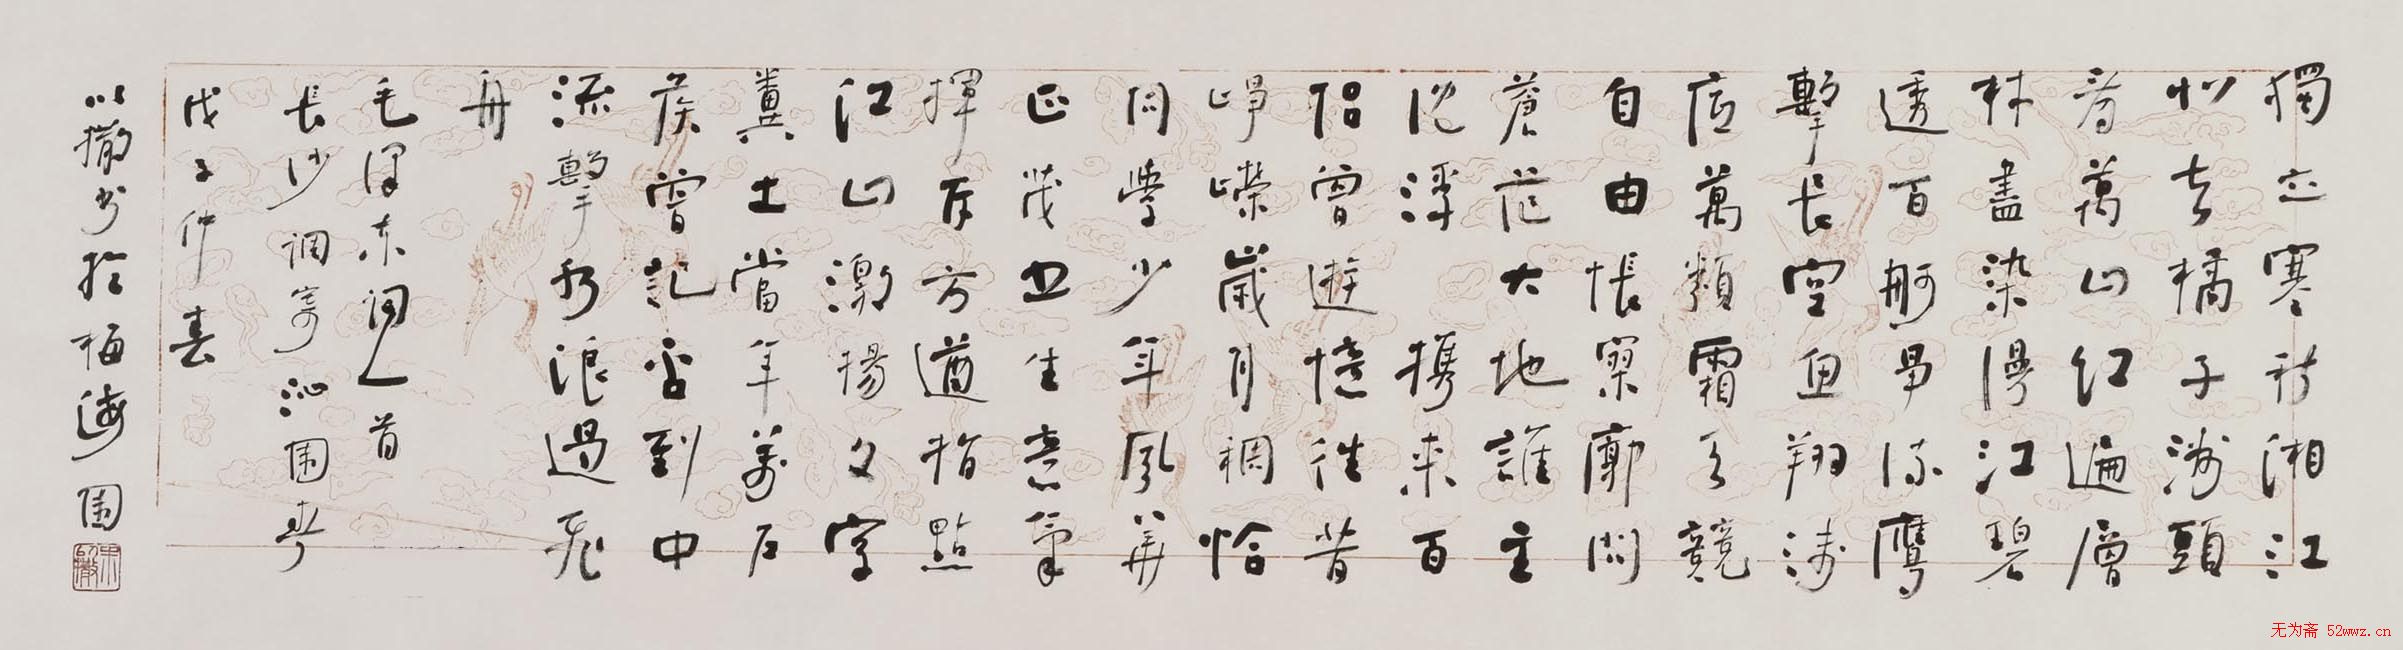 獨立寒秋湘江
北去橘子洲頭
看萬山紅遍層
林盡染漫江碧
透百舸爭流鷹
擊長空魚翔淺
底萬類霜天競
自由悵寥廓問
蒼茫大地誰主
沈浮 攜來百
侶曾遊憶往昔
崢嶸歲月稠恰
同學少年風華
正茂書生意氣
揮斥方遒指點
江山激揚文字
糞土當年萬戶
侯曾記否到中
流擊水浪遏飛
舟
毛澤東詞一首
長沙調寄沁園春
戊子仲春
以撒書於梅海園
无为斋 52wwz.cn